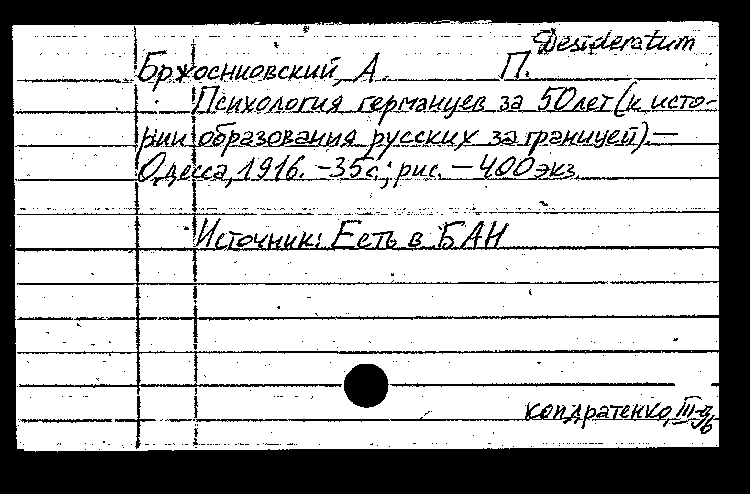 Desideratum
Бржосниовский, А. П.
Психология германцев за 50 лет (к исто-
рии образования русских за границей). —
Одесса, 1916. - 35 с.; рис. — 400 экз.
Источник: Есть в БАН
кондратенко, III-9